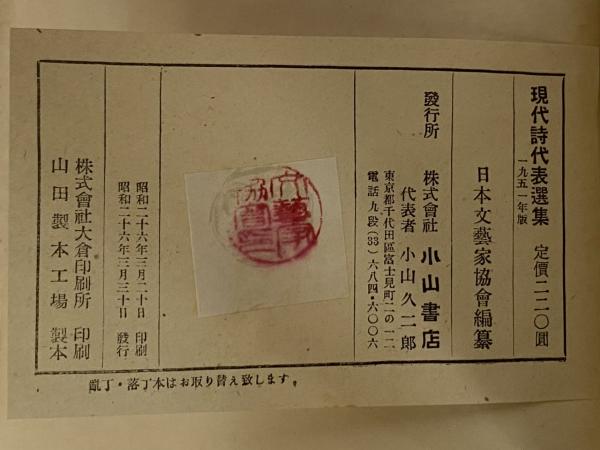 現代詩代表選集 定價二二〇圓
一九五一年版
日本文藝家協會編纂
發行所 株式會社 小山書店
代表者 小山久二郎
東京都千代田區富士見町二の一二
電話九段(33)六八四・六〇〇六
昭和二十六年三月二十日 印刷
昭和二十六年三月三十日 發行
株式會社大倉印刷所 印刷
山田製本工場 製本
亂丁・落丁本はお取り替え致します。